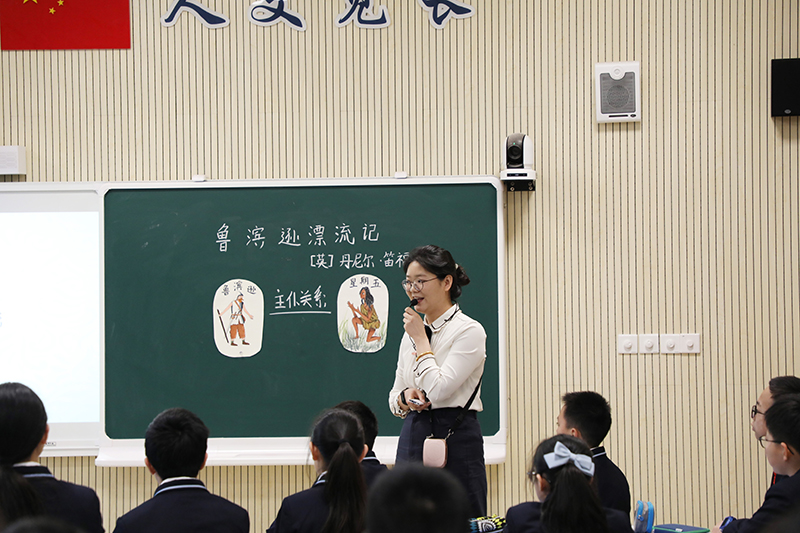 人文见长
鲁滨逊漂流记
[英]丹尼尔·笛福
鲁滨逊
主仆关系
星期五